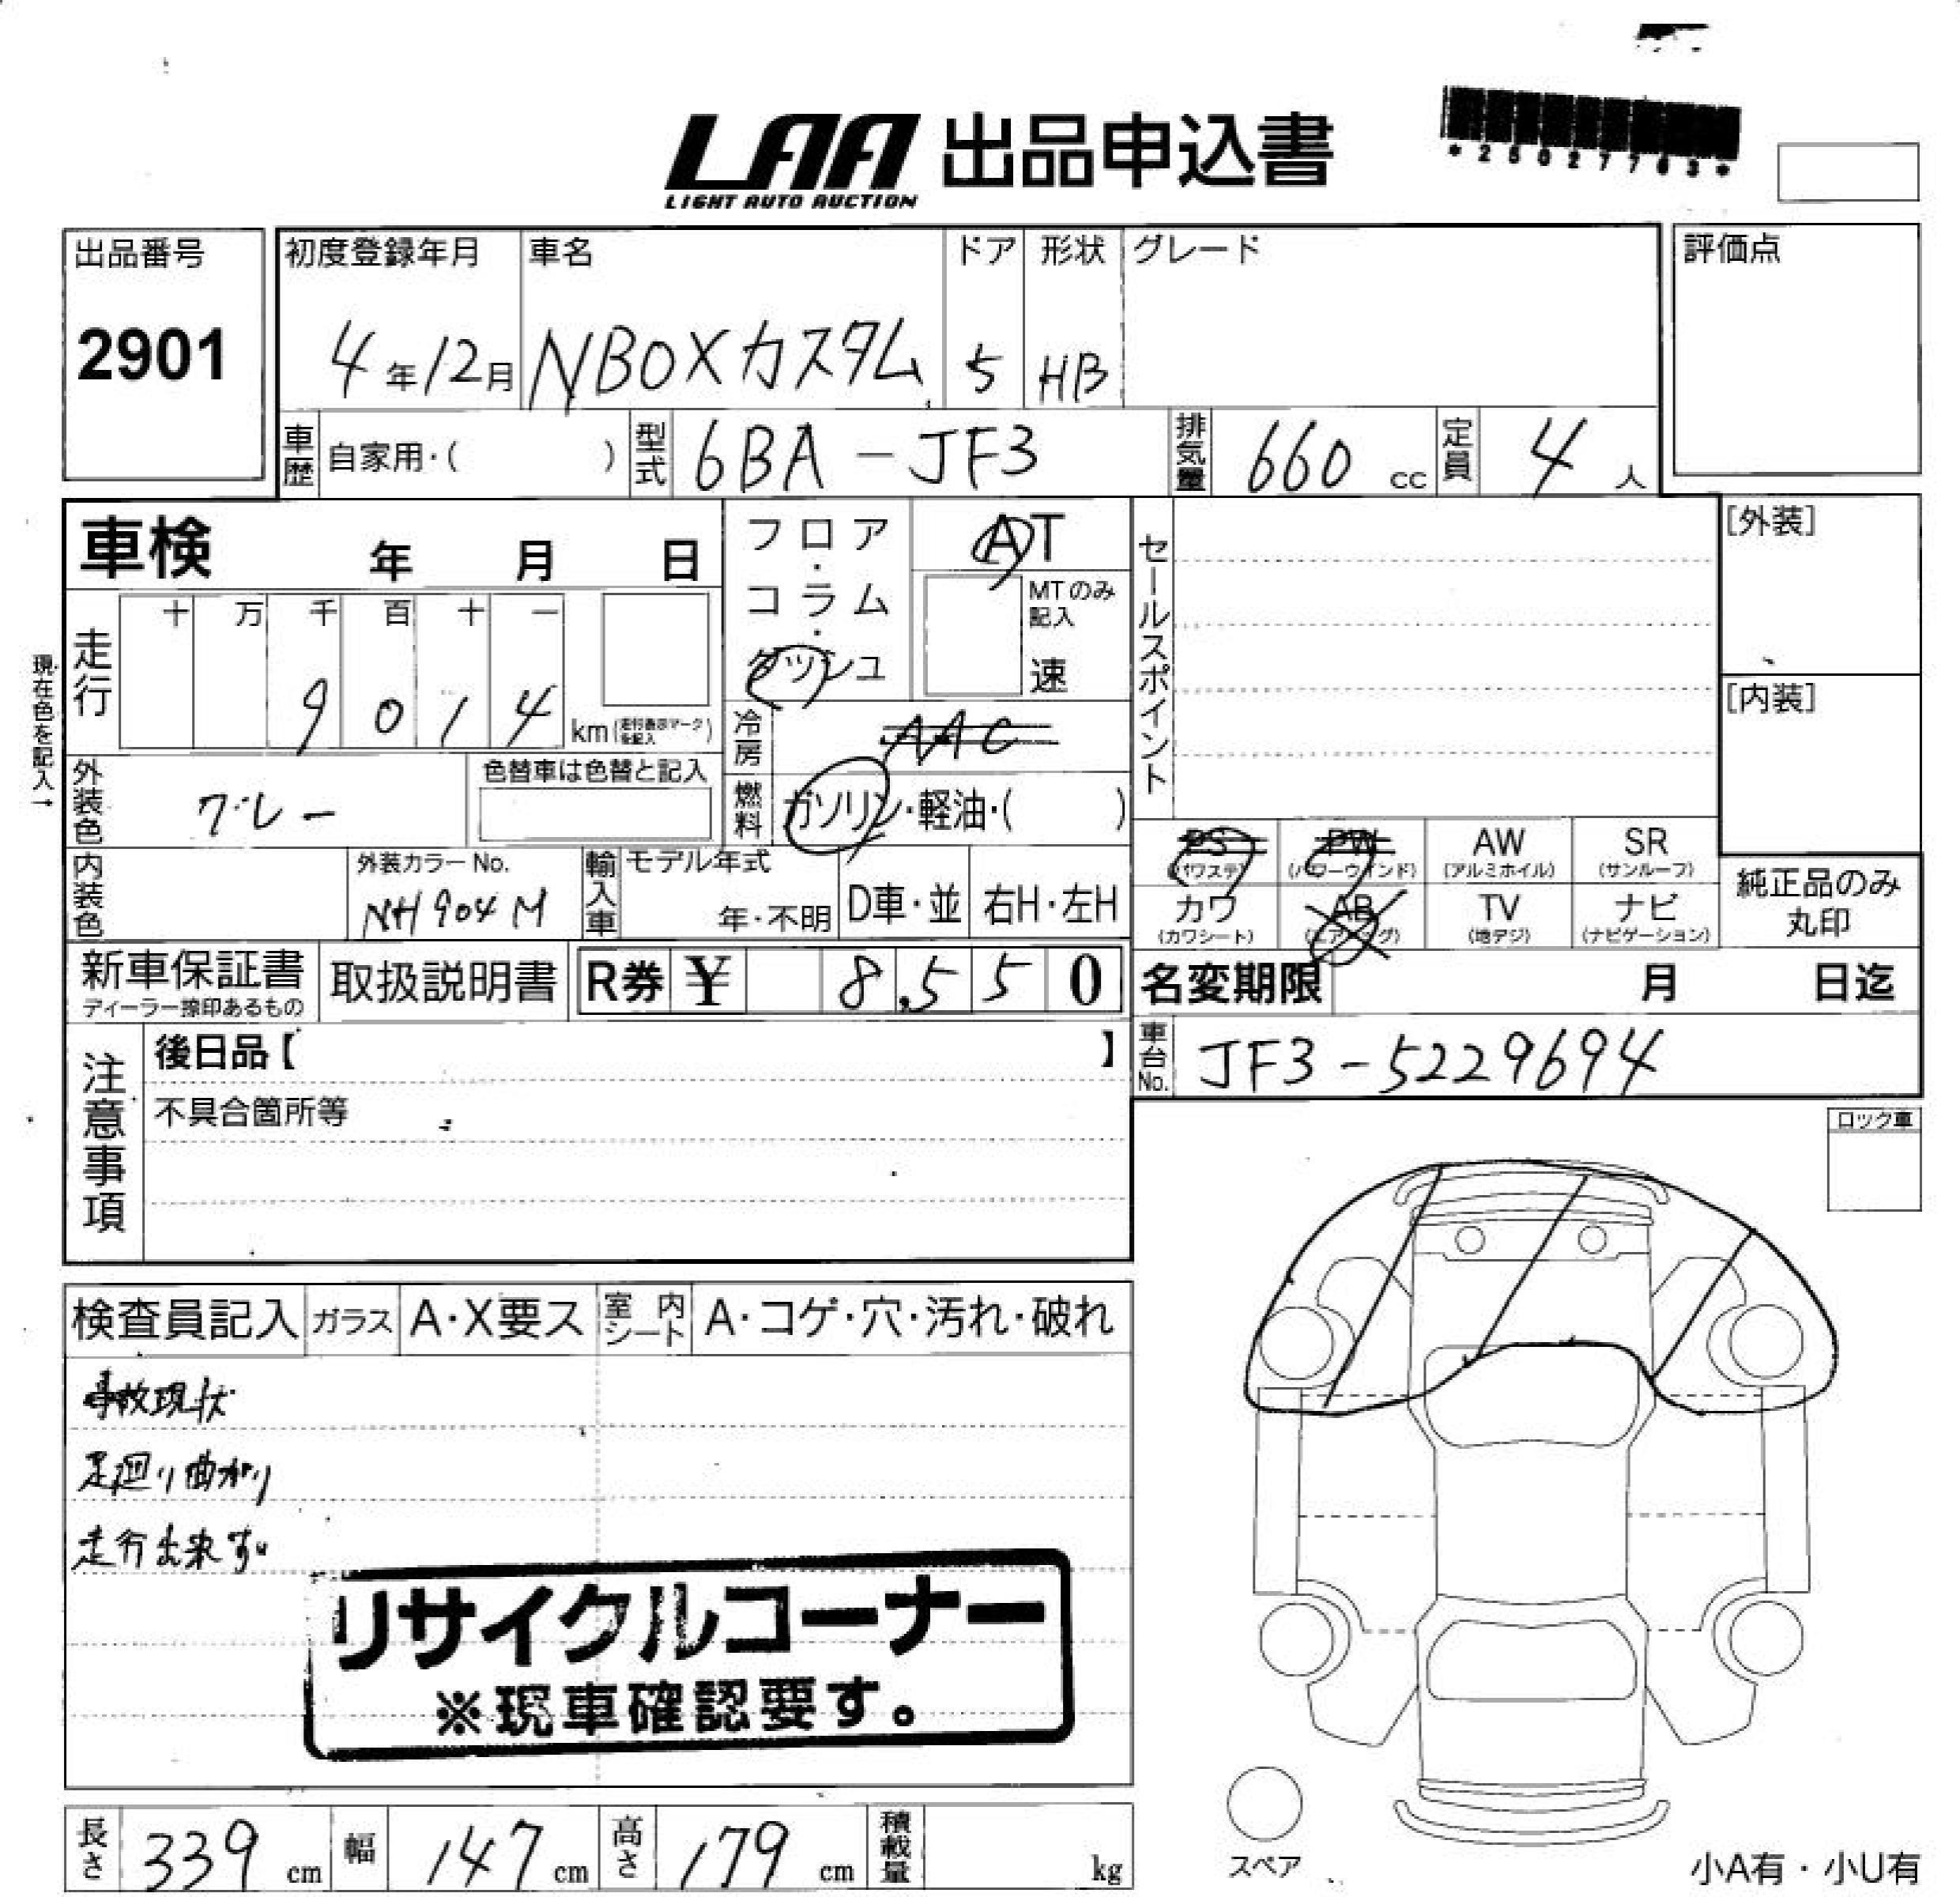 LAA 出品申込書
LIGHT AUTO AUCTION
*25027763*
出品番号
2901
初度登録年月
4年12月
車名
NBOXカスタム
ドア
5
形状
HB
グレード
評価点
車歴 自家用・( )
型式 6BA-JF3
排気量 660 cc
定員 4 人
車検 年 月 日
フロア・コラム・ダッシュ
AT
MTのみ記入
速
セールスポイント
[外装]
[内装]
現在色を記入→
走行
十 万 千 百 十 一
9 0 1 4
km(走行表示マークを記入)
冷房 AAC
外装色 グレー
色替車は色替と記入
燃料 ガソリン・軽油・( )
PS (パワステ)
PW (パワーウインド)
AW (アルミホイル)
SR (サンルーフ)
内装色
外装カラーNo.
NH904M
輸入車
モデル年式
年・不明
D車・並
右H・左H
カワ (カワシート)
AB (エアバッグ)
TV (地デジ)
ナビ (ナビゲーション)
純正品のみ
丸印
新車保証書
ディーラー捺印あるもの
取扱説明書
R券 ¥ 8,550
名変期限 月 日迄
注意事項
後日品【 】
不具合箇所等
車台No. JF3-5229694
ロック車
検査員記入
ガラス A・X要ス
室内シート A・コゲ・穴・汚れ・破れ
事故現状
足廻り曲がり
走行出来ず
リサイクルコーナー
※現車確認要す。
長さ 339 cm
幅 147 cm
高さ 179 cm
積載量 kg
スペア
小A有・小U有